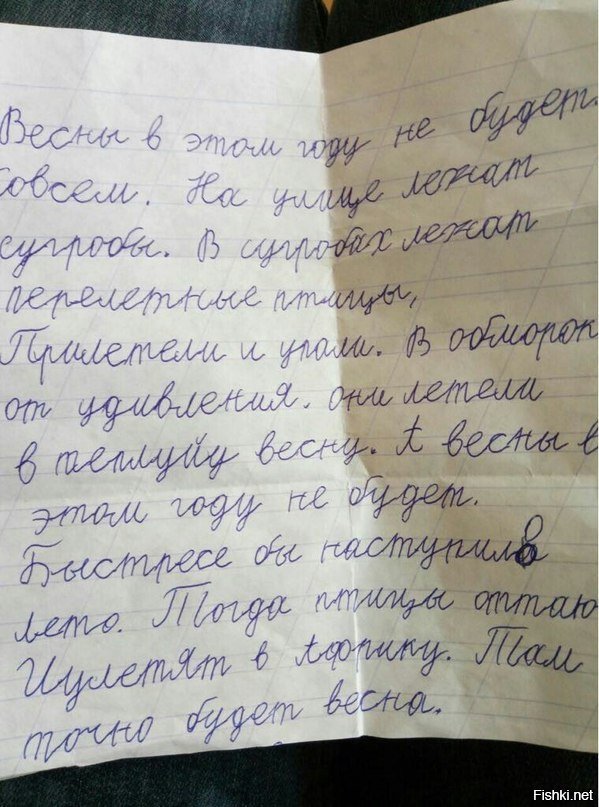 Весны в этом году не будет.
Совсем. На улице лежат
сугробы. В сугробах лежат
перелетные птицы,
Прилетели и упали. В обморок
от удивления. они летели
в теплуйу весну. А весны в
этом году не будет.
Быстресе бы наступило
лето. Тогда птицы оттаю
И улетят в Африку. Там
точно будет весна.
Fishki.net